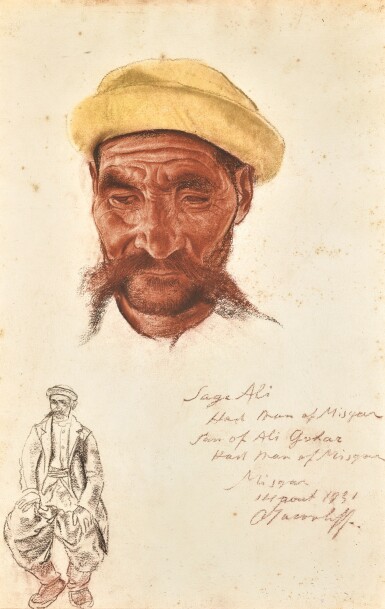 Sage Ali
Had man of Misgar
Son of Ali Gohar
Had man of Misgar
Misgar
14 aout 1931
AJacovleff.